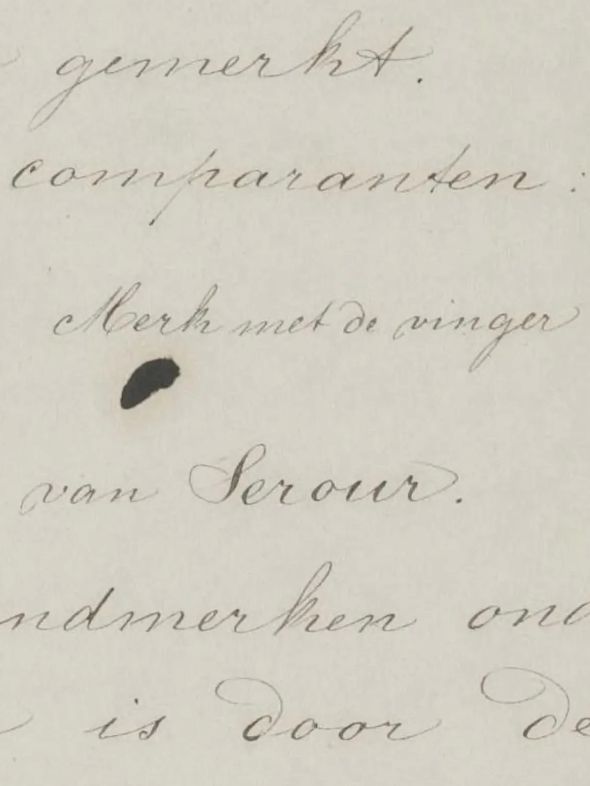 gemerkt.
comparanten:
Merk met de vinger
van Serour.
ndmerken ond
is door de